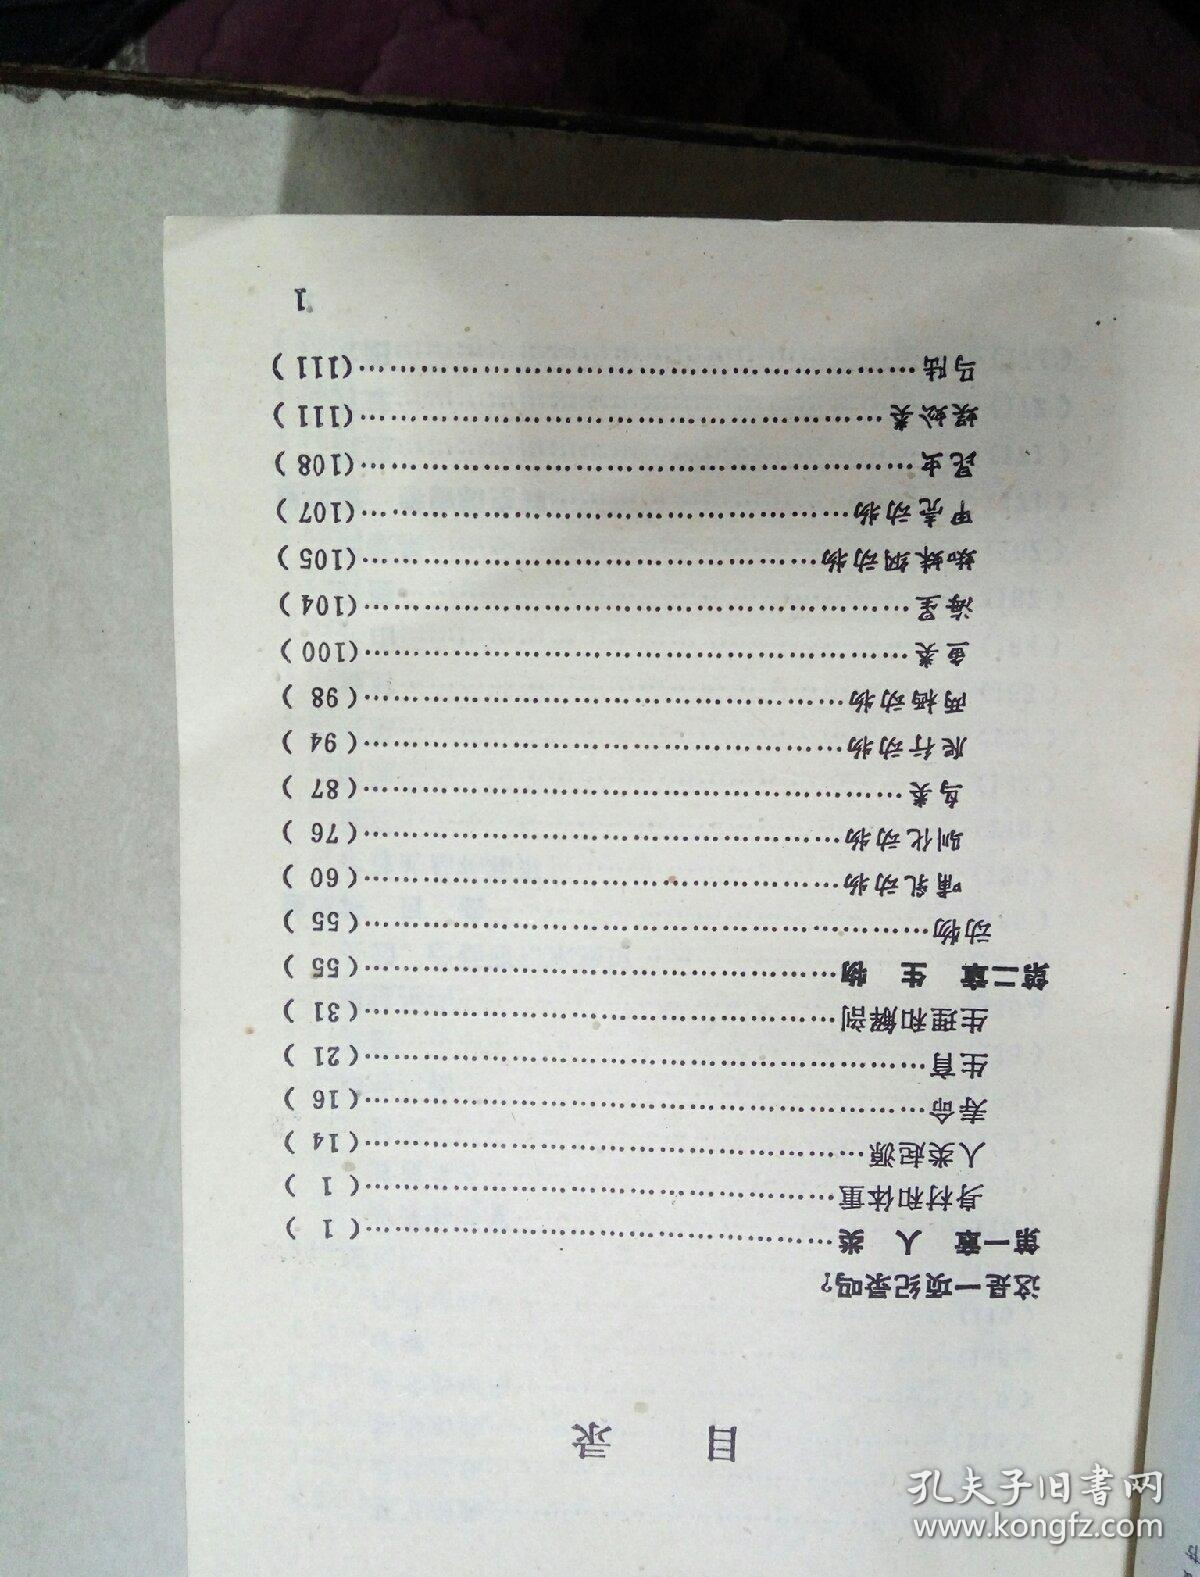 目 录
这是一项纪录吗?
第一章 人 类……………………………………( 1 )
身材和体重……………………………………( 1 )
人类起源……………………………………( 14 )
寿命……………………………………( 16 )
生育……………………………………( 21 )
生理和解剖……………………………………( 31 )
第二章 生 物……………………………………( 55 )
动物……………………………………( 55 )
哺乳动物……………………………………( 60 )
驯化动物……………………………………( 76 )
鸟类……………………………………( 87 )
爬行动物……………………………………( 94 )
两栖动物……………………………………( 98 )
鱼类……………………………………(100)
海星……………………………………(104)
蜘蛛纲动物……………………………………(105)
甲壳动物……………………………………(107)
昆虫……………………………………(108)
蜈蚣类……………………………………(111)
马陆……………………………………(111)
1
孔夫子旧书网
www.kongfz.com